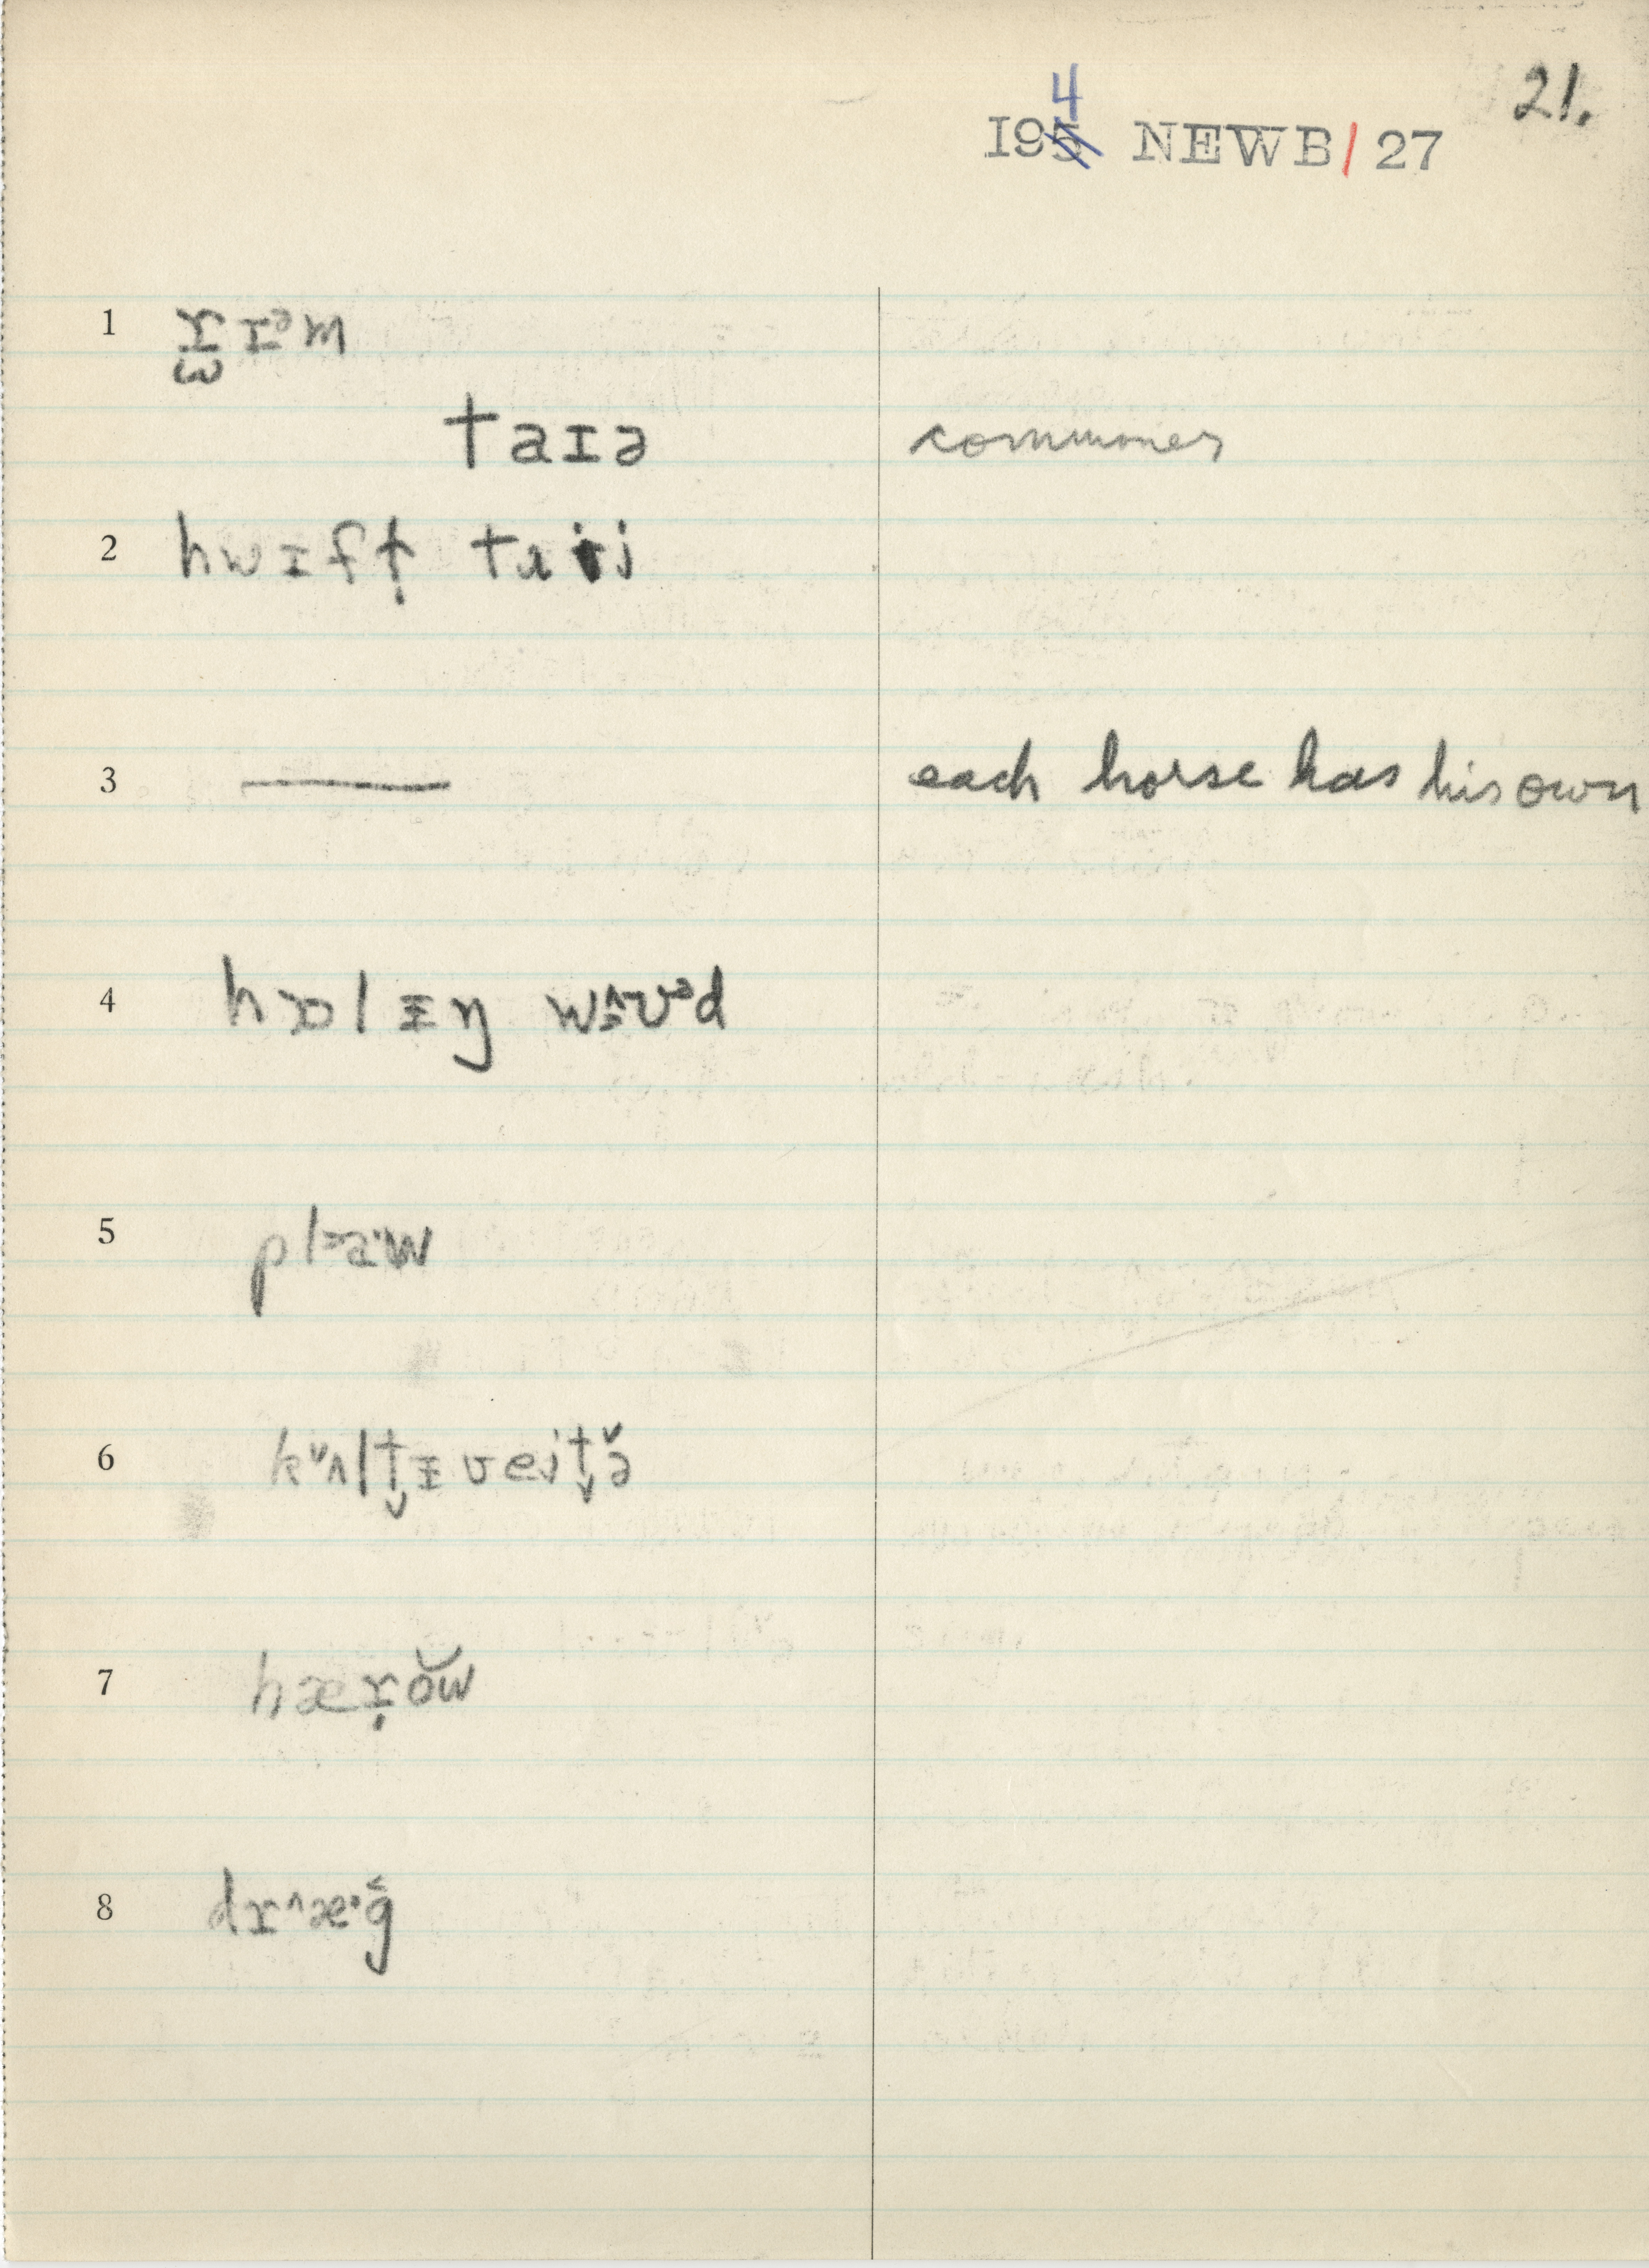 21.
4
195 NEWB/27
1 r̰ɪᵊm
taɪə commoner
2 hwɪft̩ taɪi
3 — each horse has his own
4 hɒlɪŋ wɔ^ʊᵊd
5 plaˑw
6 kᵛʌlt̬ɪveit̬ə̌
7 hærŏw
8 dr^æˑg̑